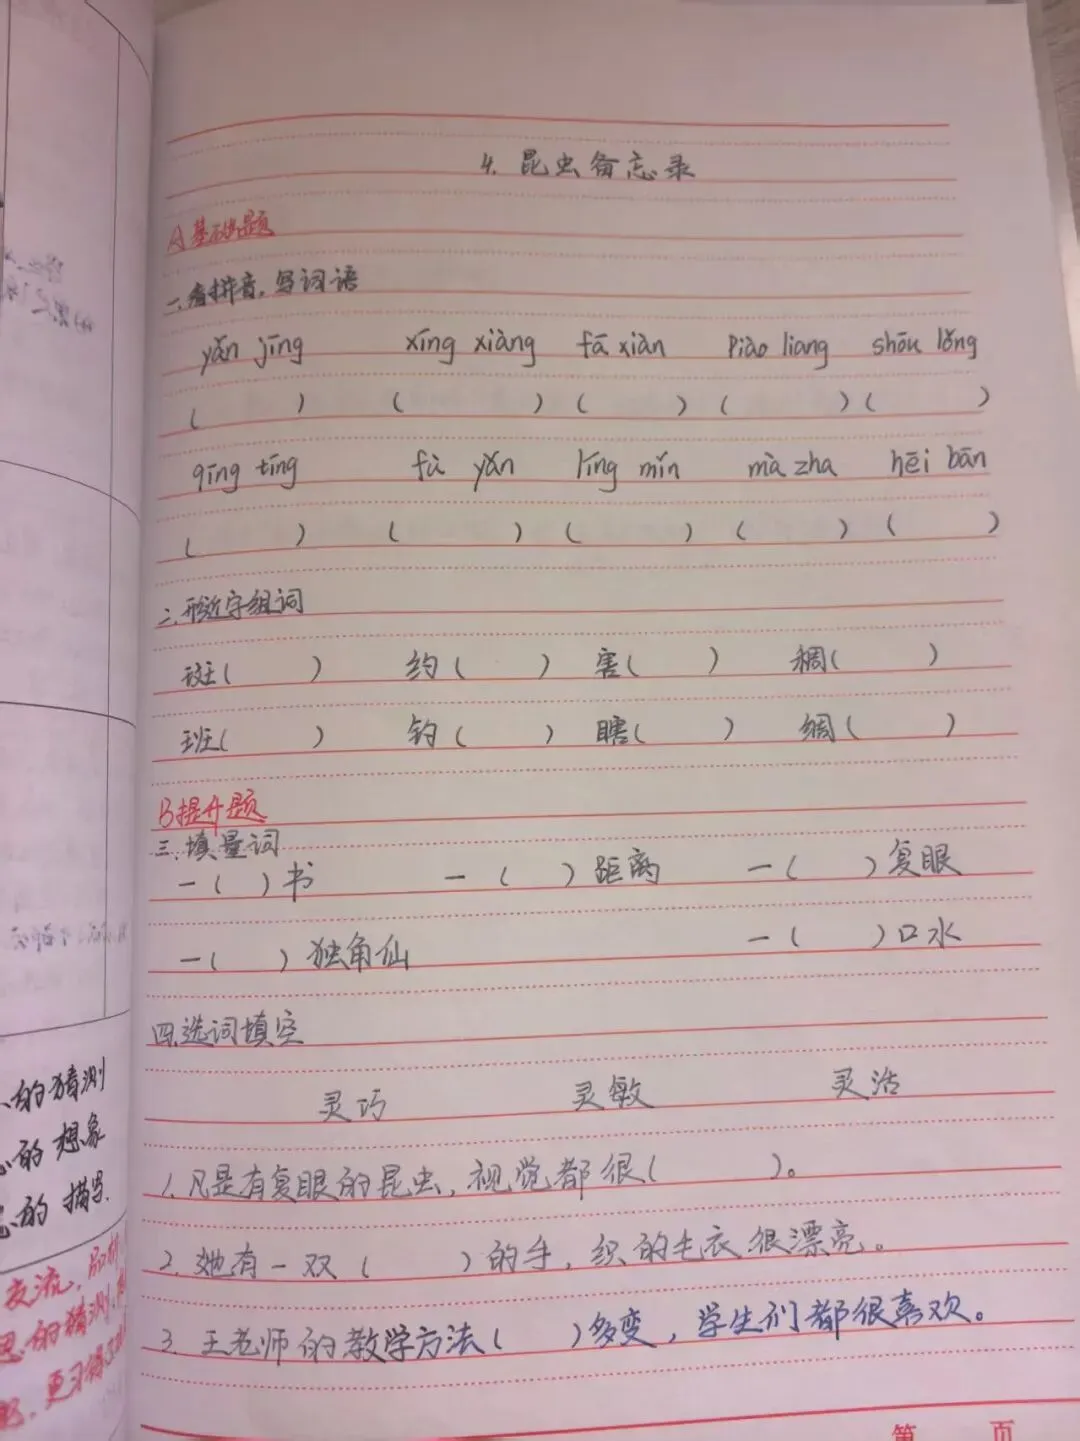 4. 昆虫备忘录
A基础题
一.看拼音,写词语
yǎn jīng xíng xiàng fā xiàn piào liang shōu lǒng
( ) ( ) ( ) ( ) ( )
qīng tíng fù yǎn líng mǐn mà zha hēi bān
( ) ( ) ( ) ( ) ( )
二.形近字组词
斑( ) 约( ) 害( ) 稠( )
班( ) 钓( ) 瞎( ) 绸( )
B提升题
三.填量词
一( )书 一( )距离 一( )复眼
一( )独角仙 一( )口水
四.选词填空
灵巧 灵敏 灵活
1.凡是有复眼的昆虫,视觉都很( )。
2.她有一双( )的手,织的毛衣很漂亮。
3.王老师的教学方法( )多变,学生们都很喜欢。
第 页
的猜测
的想象
的描写.
交流,
的猜测,